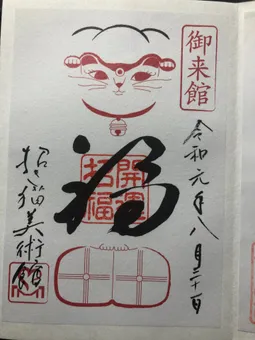 御来館
令和元年八月
福
開運
招福
招き猫美術館